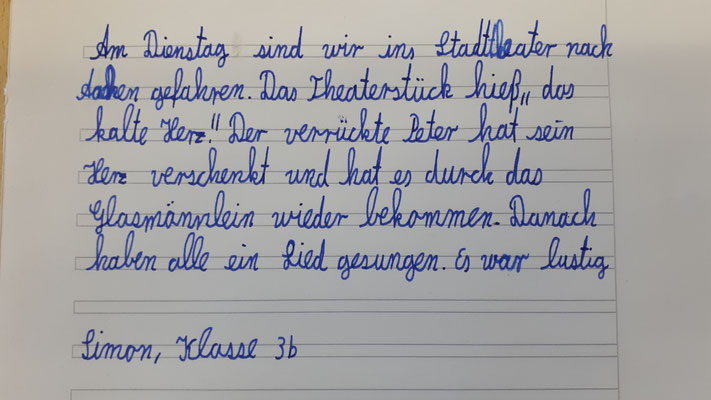 Am Dienstag sind wir ins Stadttheater nach
Aachen gefahren. Das Theaterstück hieß „das
kalte Herz." Der verrückte Peter hat sein
Herz verschenkt und hat es durch das
Glasmännlein wieder bekommen. Danach
haben alle ein Lied gesungen. Es war lustig
Simon, Klasse 3b